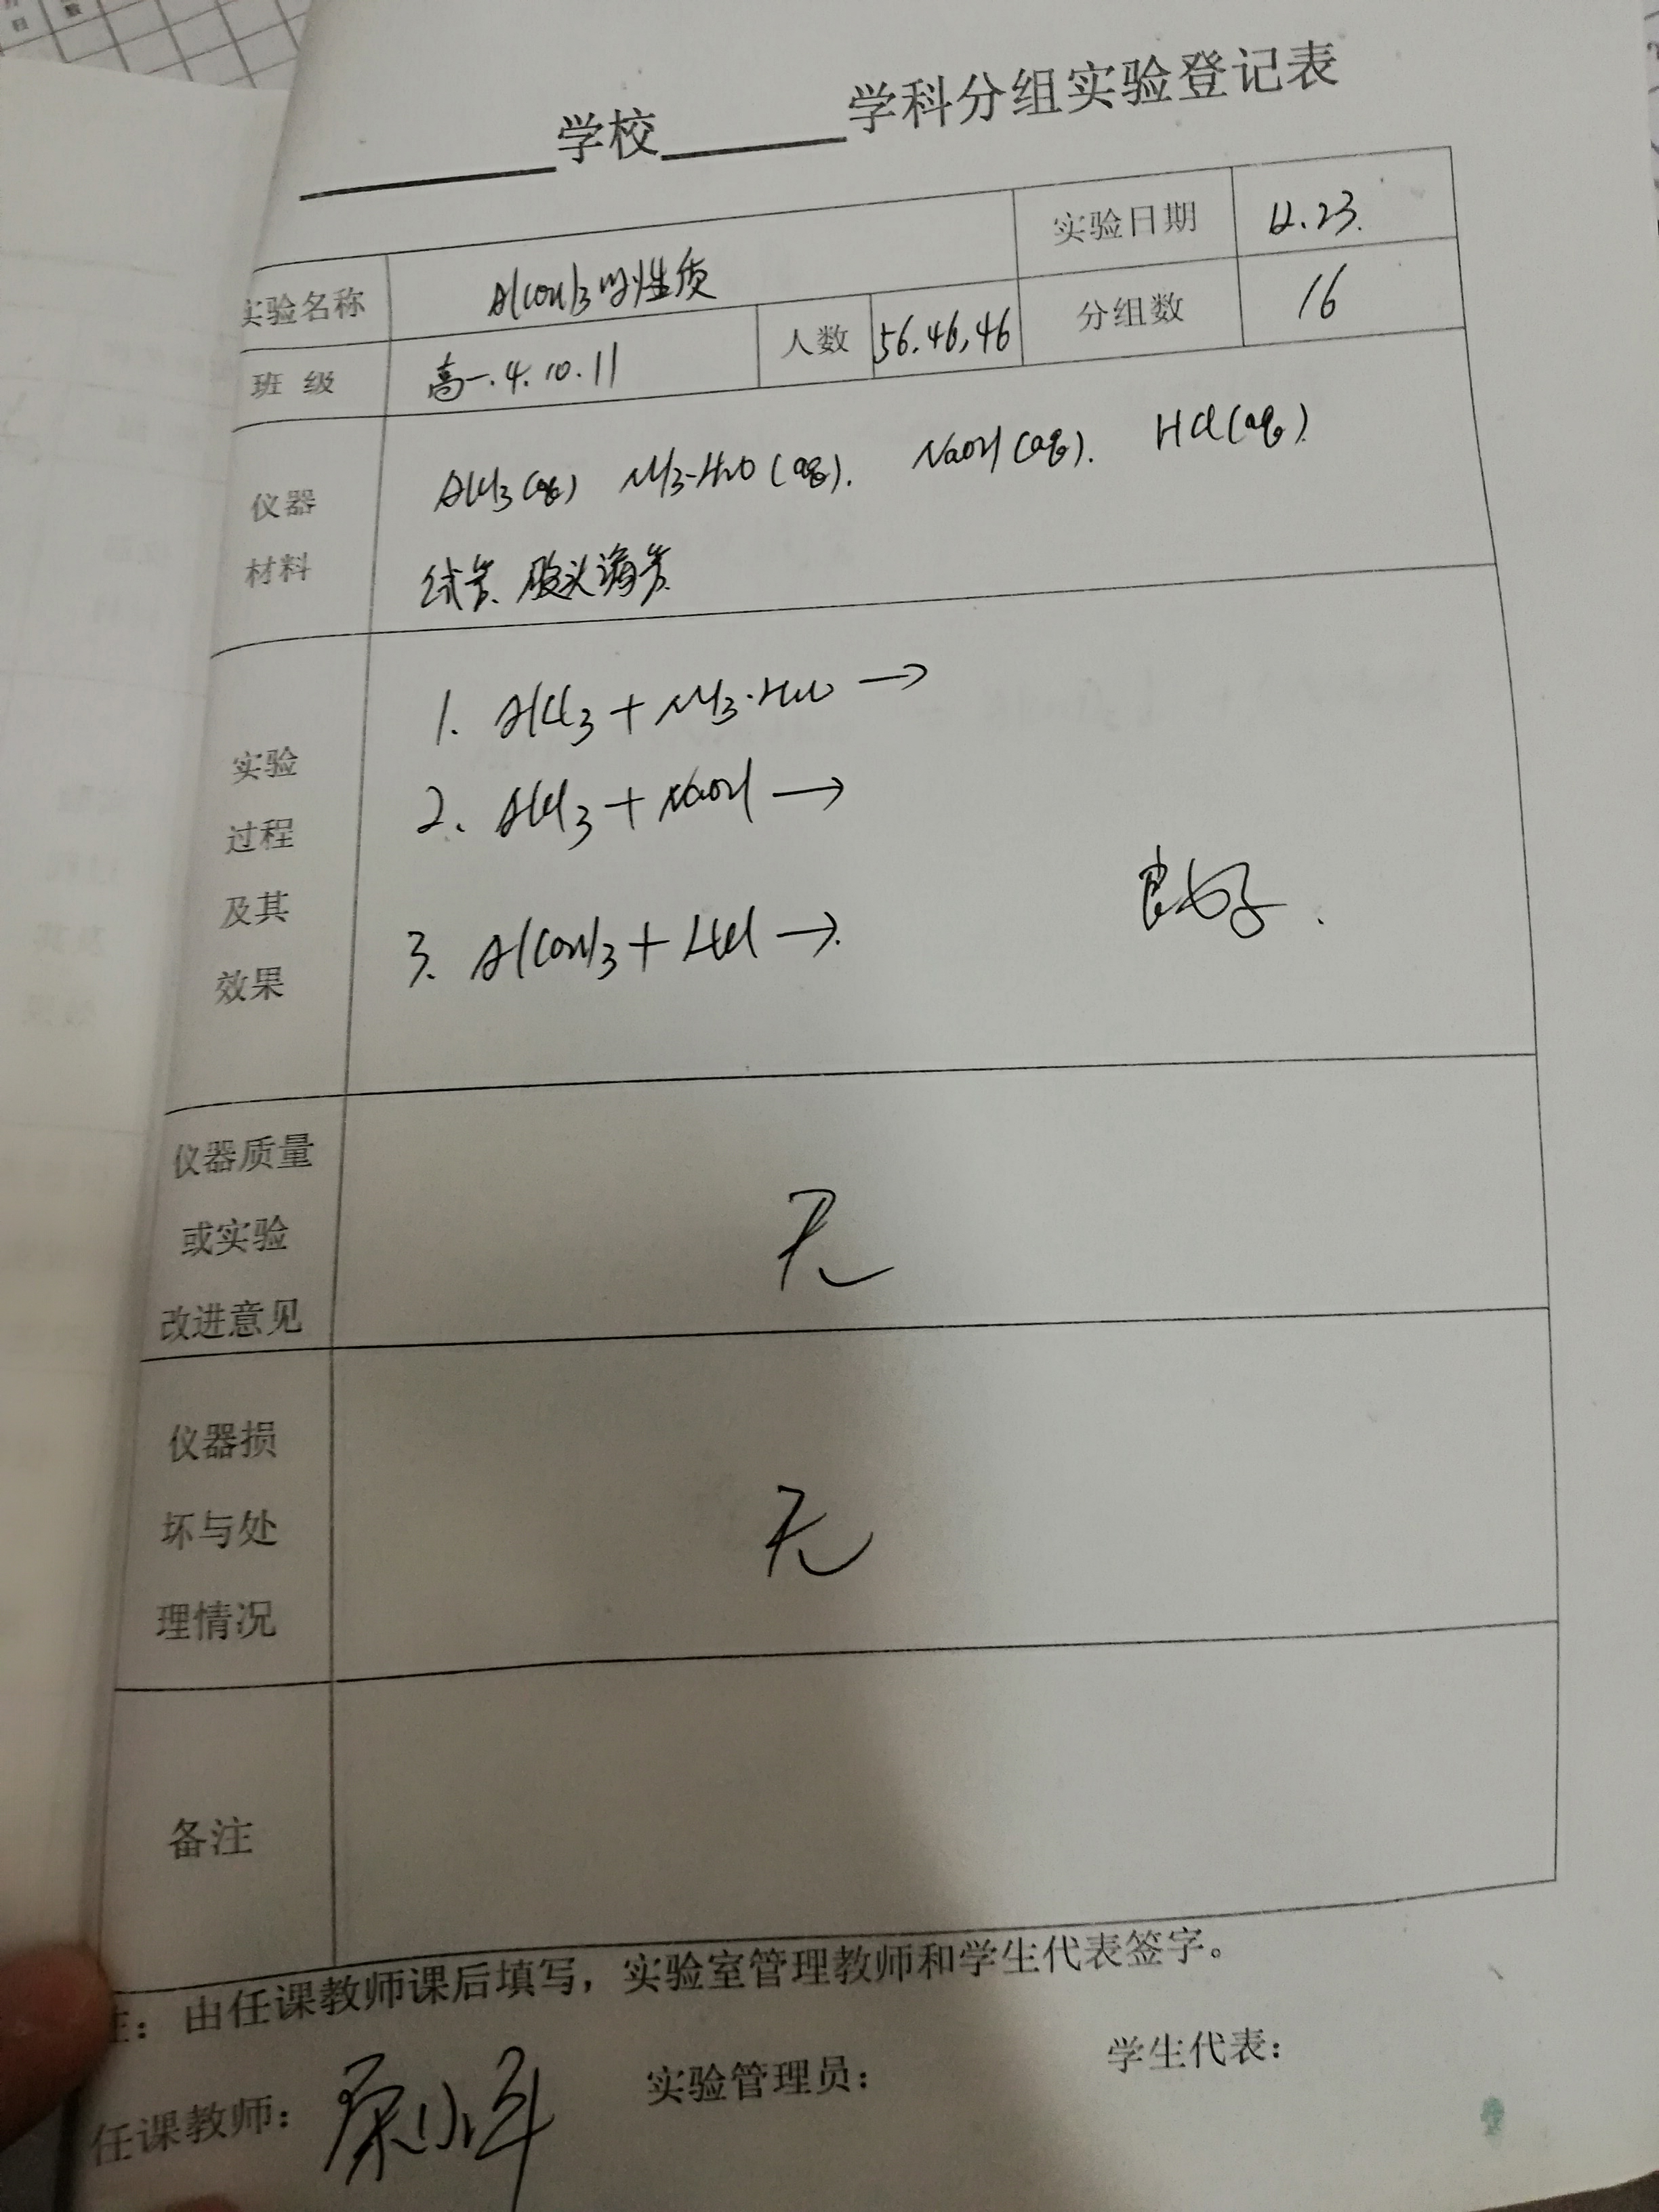 学校 学科分组实验登记表
实验名称 Al(OH)3的性质 实验日期 12.23.
班级 高一.4.10.11 人数 56.46,46 分组数 16
仪器 AlCl3(aq) NH3·H2O(aq). NaOH(aq). HCl(aq).
材料 试管、胶头滴管
实验
过程
及其
效果
1. AlCl3+NH3·H2O→
2. AlCl3+NaOH→
3. Al(OH)3+HCl→.
良好.
仪器质量
或实验
改进意见
无
仪器损
坏与处
理情况
无
备注
注：由任课教师课后填写，实验室管理教师和学生代表签字。
任课教师： 实验管理员： 学生代表：